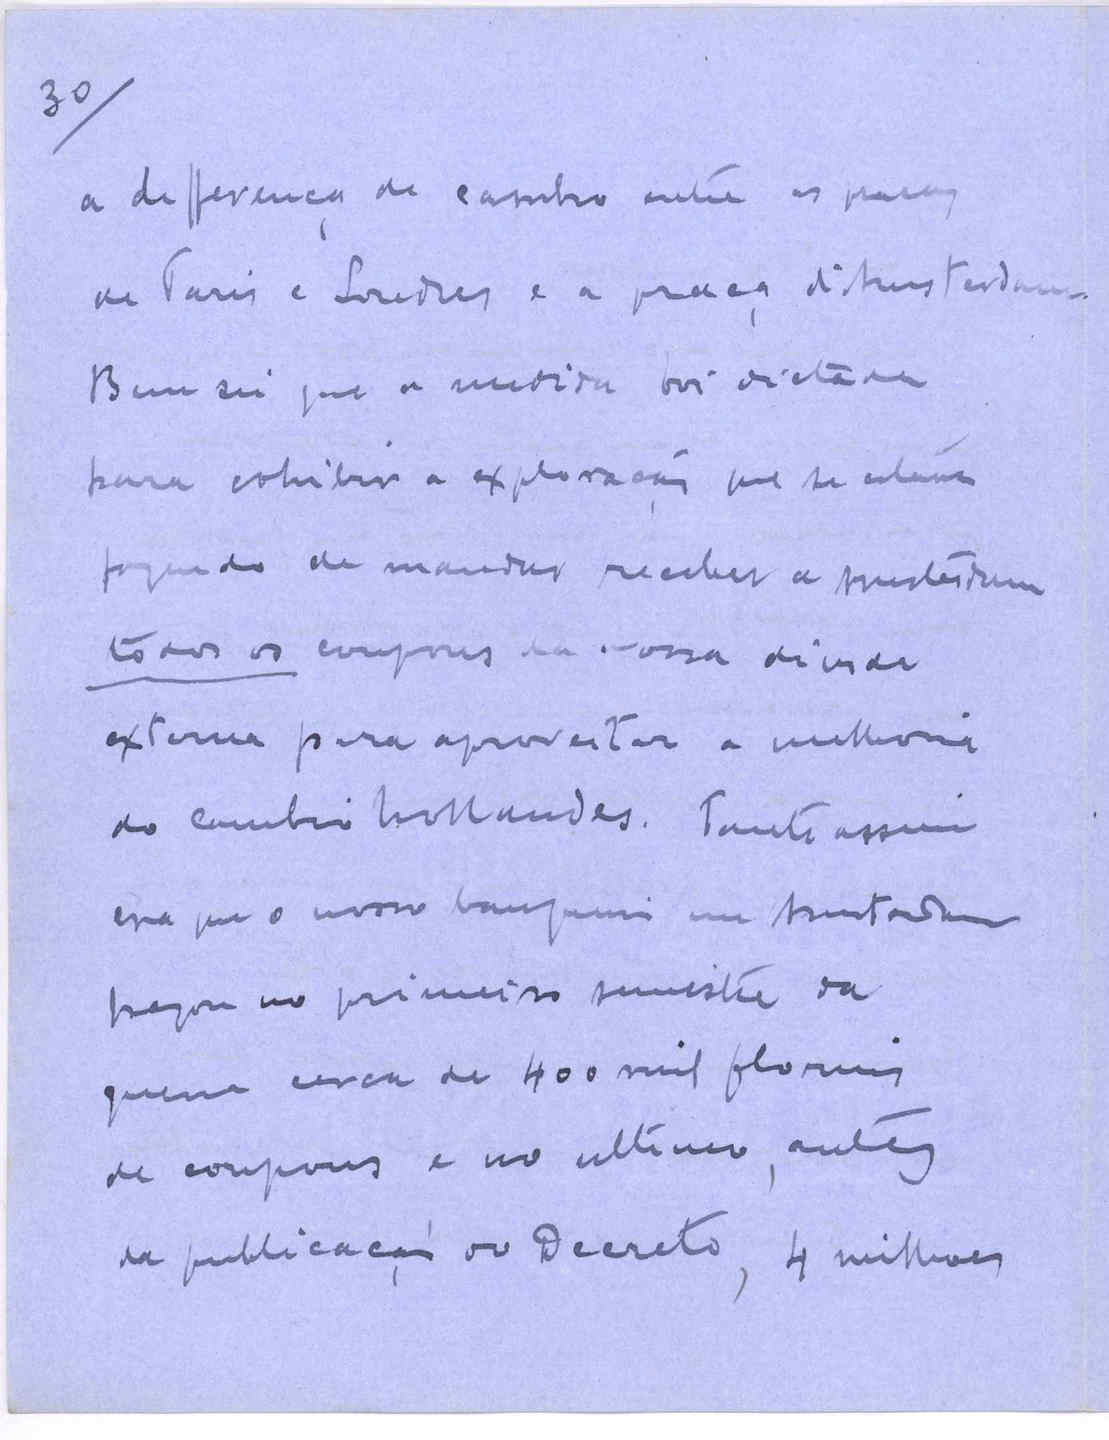 30/
a differença de cambio entre as praças
de Paris e Londres e a praça d'Amsterdam.
Bem sei que a medida foi dictada
para cohibir a exploração que se estava
fazendo de mandar receber a Amsterdam
todos os coupons da nossa divida
externa para aproveitar a melhoria
do cambio hollandes. Tanto assim
era que o nosso banqueiro em Amsterdam
pagou no primeiro semestre da
guerra cerca de 400 mil florins
de coupons e no ultimo, antes
da publicação do Decreto, 4 milhoes